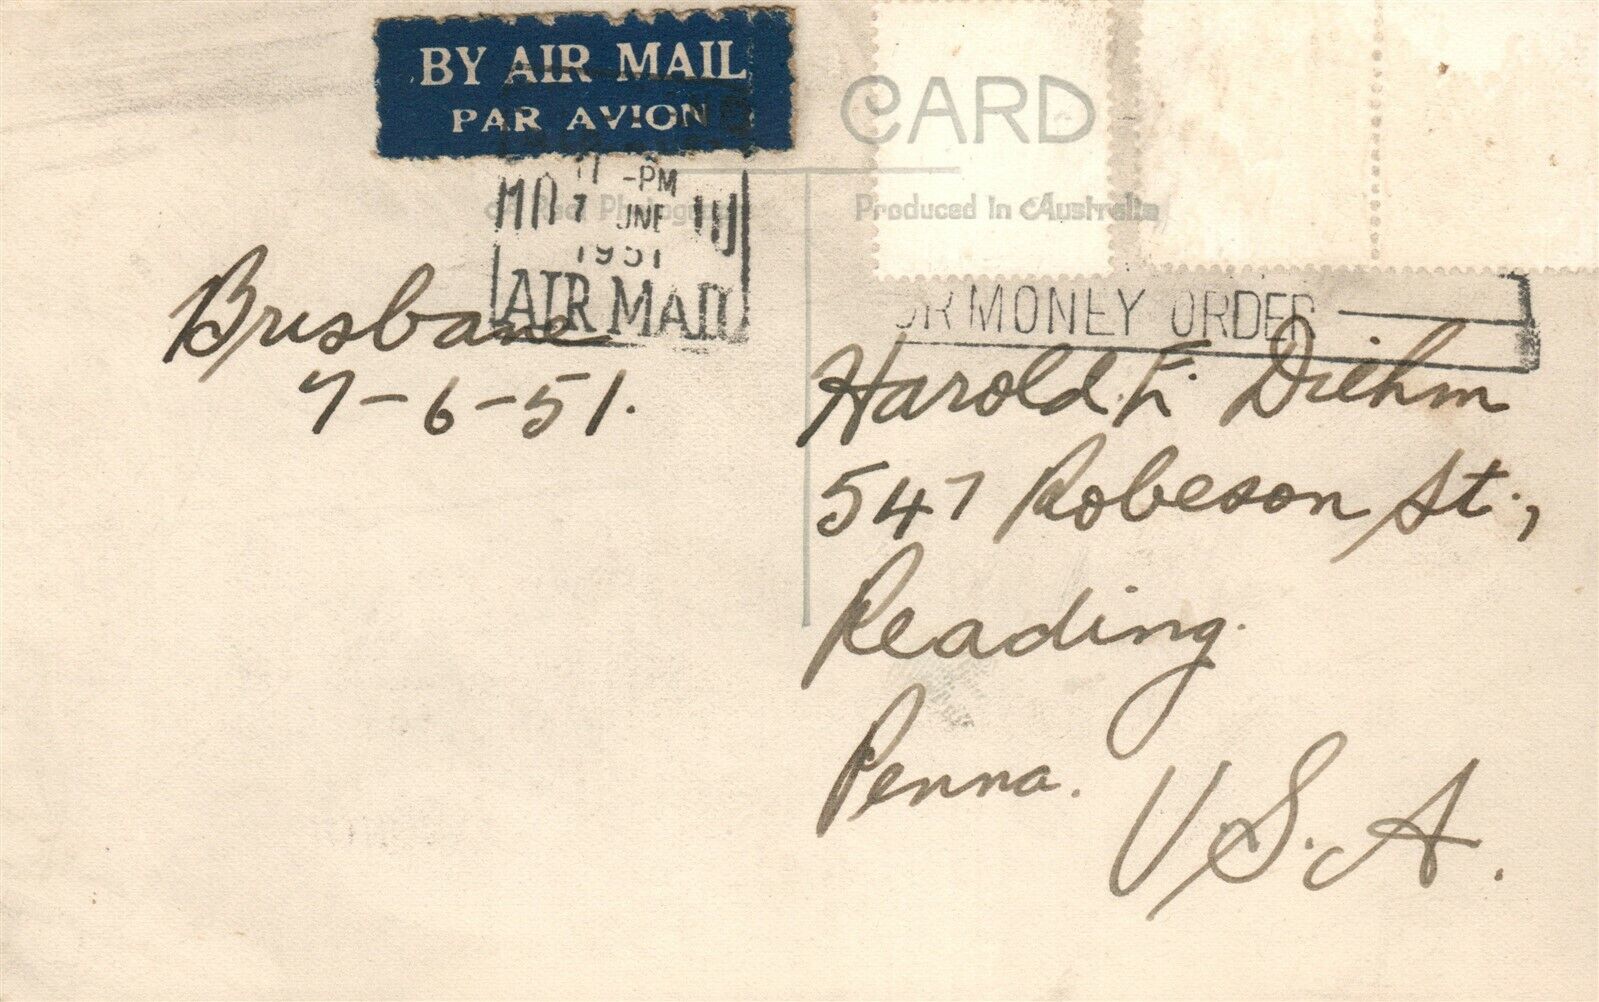 BY AIR MAIL
PAR AVION
CARD
Produced in Australia
-PM
7 JNE
1951
AIR MAIL
MONEY ORDER
Brisbane
7-6-51.
Harold F. Diehm
547 Robeson St.,
Reading.
Penna.
U.S.A.